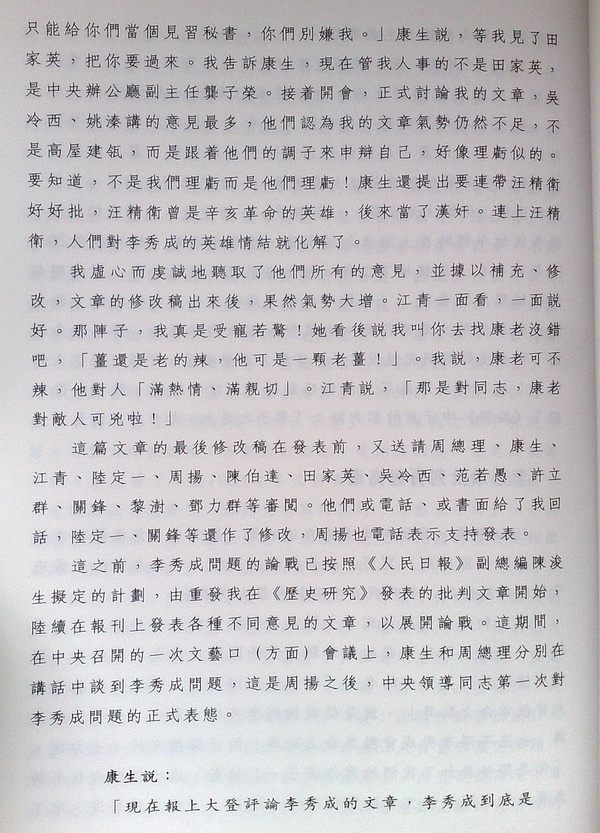 只能給你們當個見習秘書，你們別嫌我。」康生説，等我見了田
家英，把你要過來。我告訴康生，現在管我人事的不是田家英，
是中央辦公廳副主任龔子榮。接着開會，正式討論我的文章，吳
冷西、姚溱講的意見最多，他們認為我的文章氣勢仍然不足，不
是高屋建瓴，而是跟着他們的調子來申辯自己，好像理虧似的。
要知道，不是我們理虧而是他們理虧！康生還提出要連帶汪精衛
好好批，汪精衛曾是辛亥革命的英雄，後來當了漢奸。連上汪精
衛，人們對李秀成的英雄情結就化解了。
我虛心而虔誠地聽取了他們所有的意見，並據以補充、修
改，文章的修改稿出來後，果然氣勢大增。江青一面看，一面説
好。那陣子，我真是受寵若驚！她看後説我叫你去找康老沒錯
吧，「薑還是老的辣，他可是一顆老薑！」。我説，康老可不
辣，他對人「滿熱情、滿親切」。江青説，「那是對同志，康老
對敵人可兇啦！」
這篇文章的最後修改稿在發表前，又送請周總理、康生、
江青、陸定一、周揚、陳伯達、田家英、吳冷西、范若愚、許立
群、關鋒、黎澍、鄧力群等審閱。他們或電話、或書面給了我回
話，陸定一、關鋒等還作了修改，周揚也電話表示支持發表。
這之前，李秀成問題的論戰已按照《人民日報》副總編陳浚
生擬定的計劃，由重發我在《歷史研究》發表的批判文章開始，
陸續在報刊上發表各種不同意見的文章，以展開論戰。這期間，
在中央召開的一次文藝口（方面）會議上，康生和周總理分別在
講話中談到李秀成問題，這是周揚之後，中央領導同志第一次對
李秀成問題的正式表態。
康生説：
「現在報上大登評論李秀成的文章，李秀成到底是